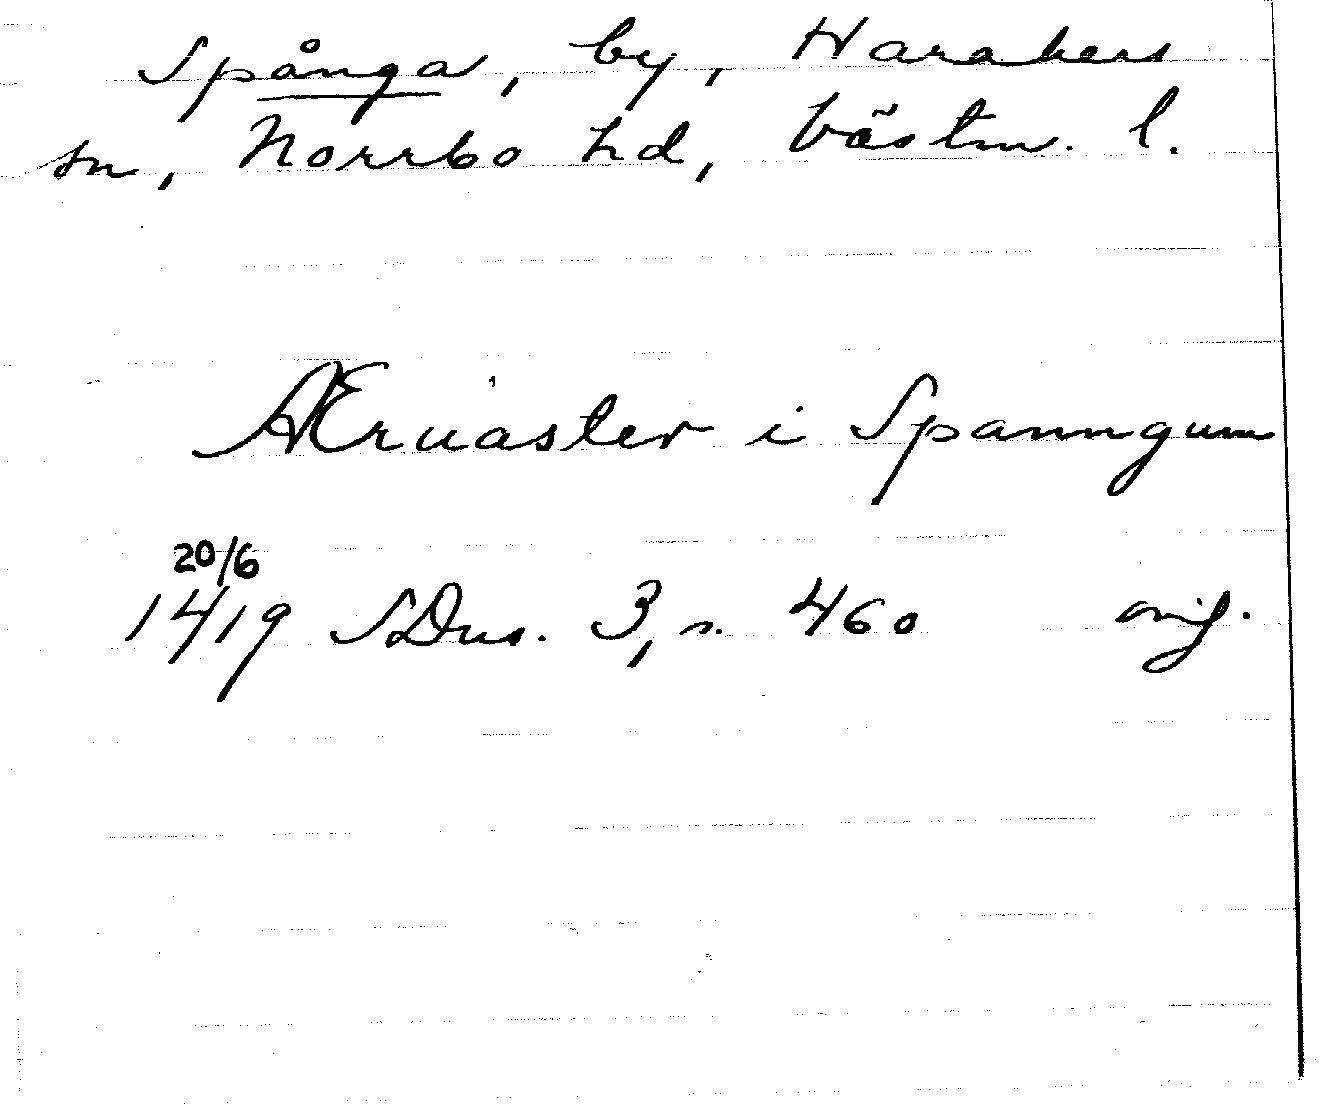 Spånga, by, Harakers
sn, Norrbo hd, Västm. l.
Æruaster i Spanngum
20/6
1419 SDns. 3, s. 460 orig.